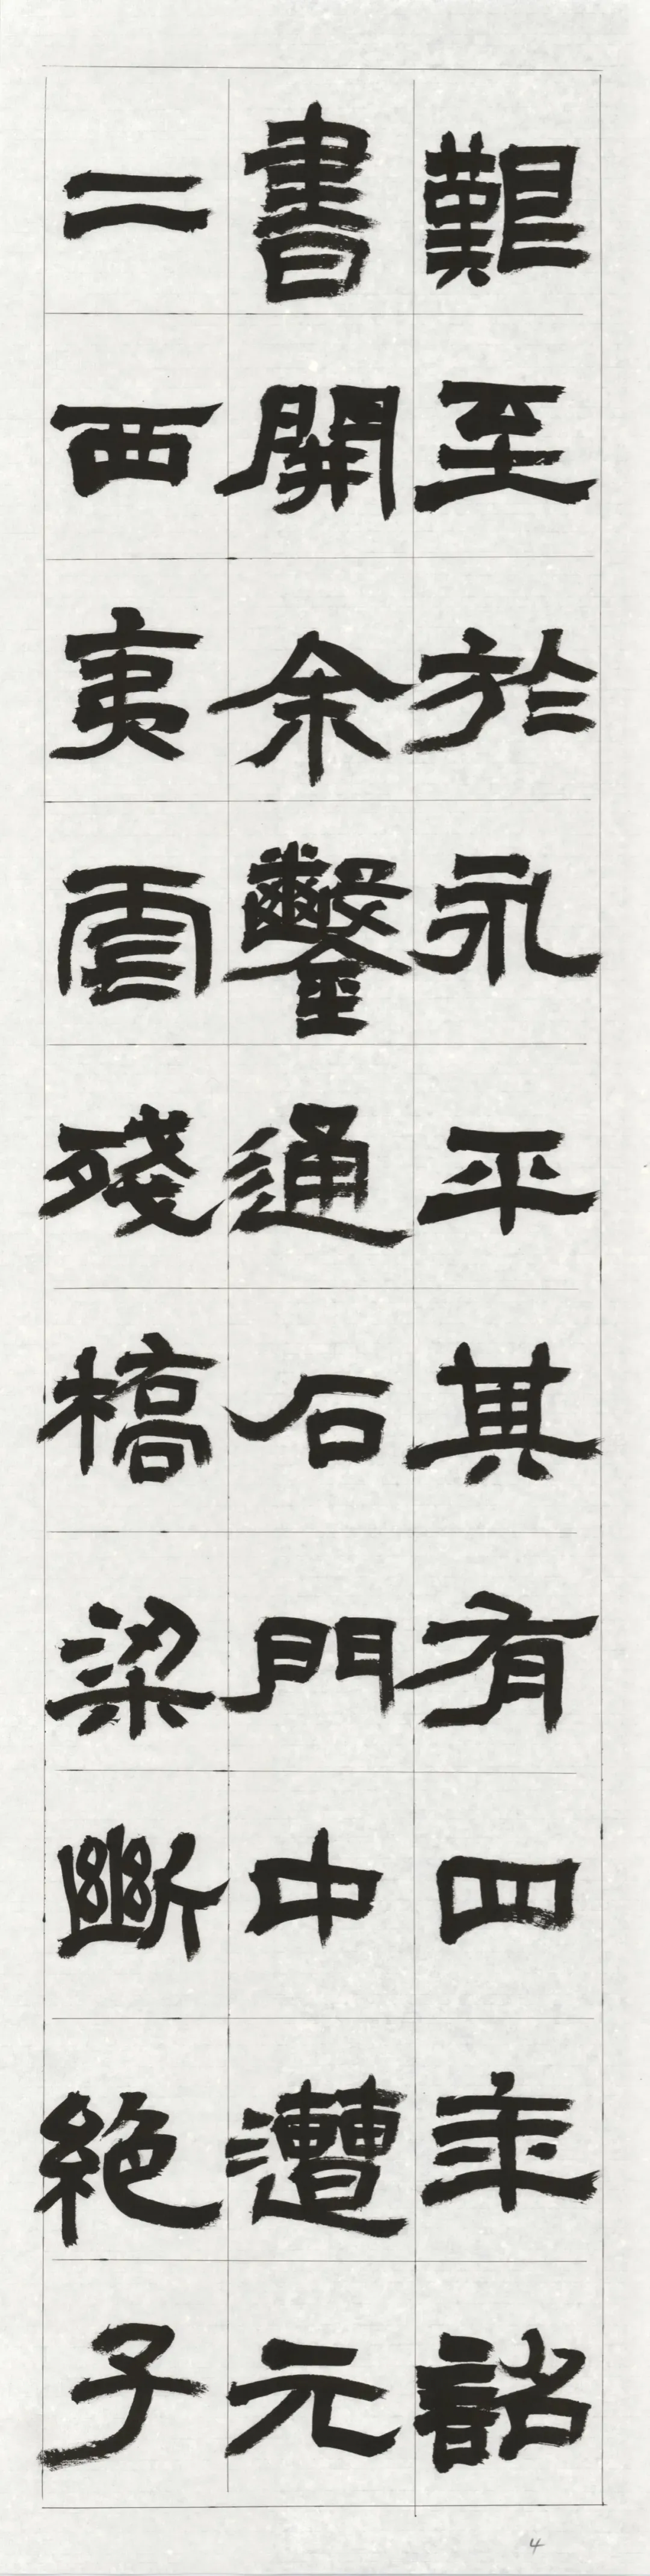 艱至於永平其有四年詔
書開余鑿通石門中遭元
二西夷虐殘橋梁斷絕子
4